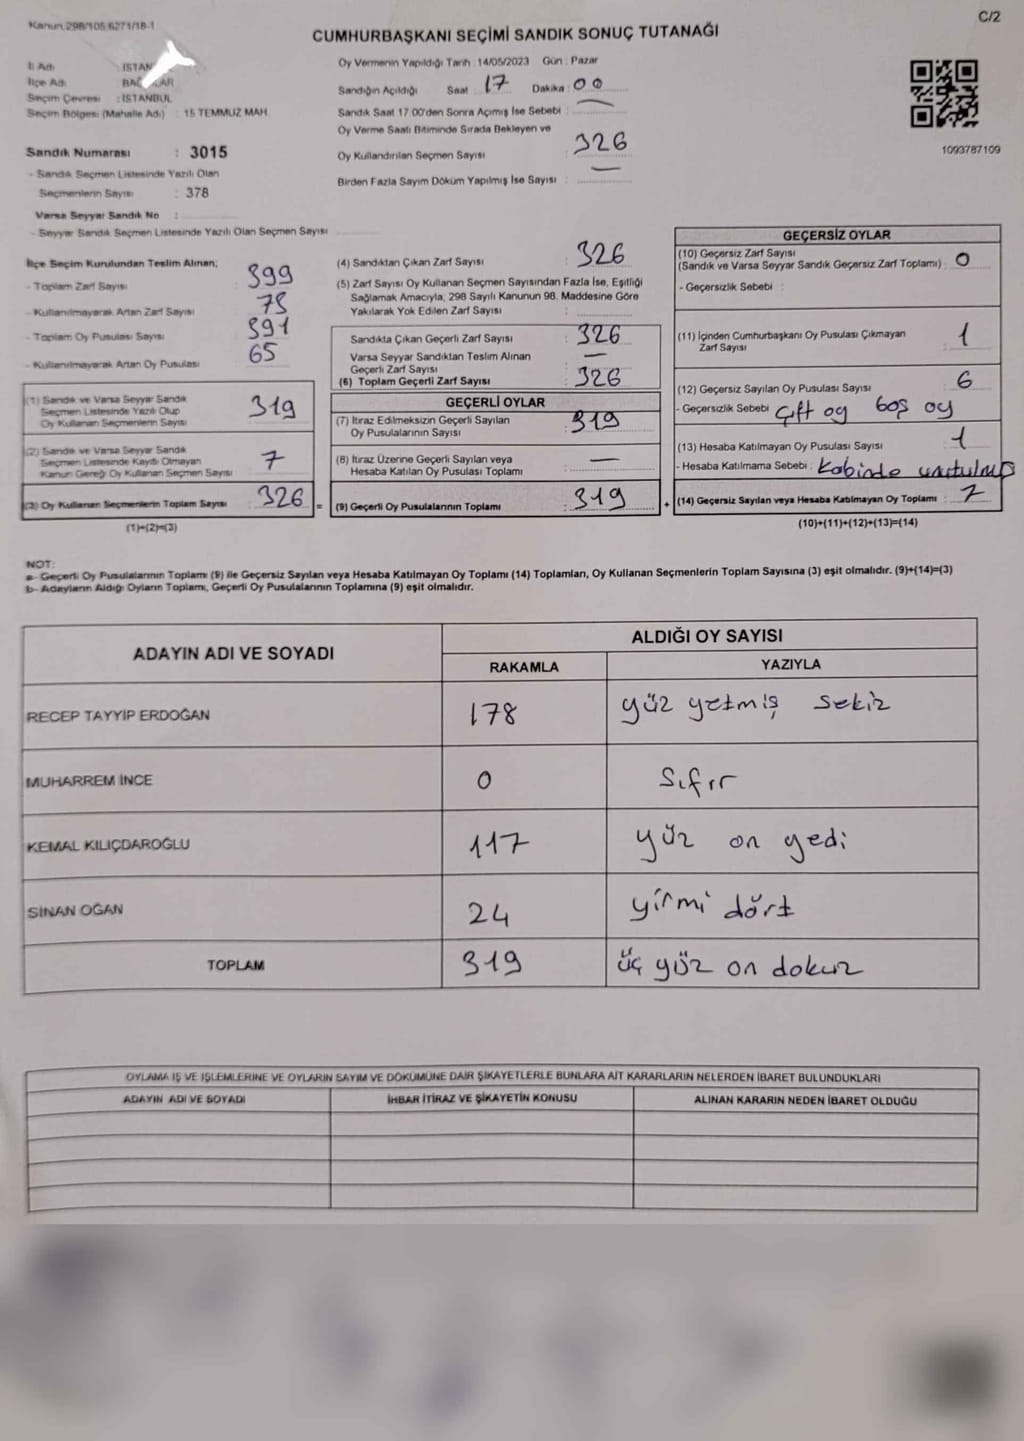 Kanun:298/105,6271/18-1
C/2
CUMHURBAŞKANI SEÇİMİ SANDIK SONUÇ TUTANAĞI
İl Adı : İSTAN
İlçe Adı : BAĞ LAR
Seçim Çevresi : İSTANBUL
Seçim Bölgesi (Mahalle Adı) : 15 TEMMUZ MAH.
Sandık Numarası : 3015
- Sandık Seçmen Listesinde Yazılı Olan
Seçmenlerin Sayısı : 378
Varsa Seyyar Sandık No :
- Seyyar Sandık Seçmen Listesinde Yazılı Olan Seçmen Sayısı
Oy Vermenin Yapıldığı Tarih : 14/05/2023 Gün : Pazar
Sandığın Açıldığı Saat : 17 Dakika : 00
Sandık Saat 17:00'den Sonra Açılmış İse Sebebi : —
Oy Verme Saati Bitiminde Sırada Bekleyen ve
Oy Kullandırılan Seçmen Sayısı : 326
Birden Fazla Sayım Döküm Yapılmış İse Sayısı : —
1093787109
İlçe Seçim Kurulundan Teslim Alınan;
- Toplam Zarf Sayısı 399
- Kullanılmayarak Artan Zarf Sayısı 73
- Toplam Oy Pusulası Sayısı 391
- Kullanılmayarak Artan Oy Pusulası 65
(1) Sandık ve Varsa Seyyar Sandık
Seçmen Listesinde Yazılı Olup
Oy Kullanan Seçmenlerin Sayısı 319
(2) Sandık ve Varsa Seyyar Sandık
Seçmen Listesinde Kayıtlı Olmayan
Kanun Gereği Oy Kullanan Seçmen Sayısı 7
(3) Oy Kullanan Seçmenlerin Toplam Sayısı 326
(1)+(2)=(3)
(4) Sandıktan Çıkan Zarf Sayısı : 326
(5) Zarf Sayısı Oy Kullanan Seçmen Sayısından Fazla İse, Eşitliği
Sağlamak Amacıyla, 298 Sayılı Kanunun 98. Maddesine Göre
Yakılarak Yok Edilen Zarf Sayısı :
Sandıkta Çıkan Geçerli Zarf Sayısı : 326
Varsa Seyyar Sandıktan Teslim Alınan
Geçerli Zarf Sayısı —
(6) Toplam Geçerli Zarf Sayısı : 326
GEÇERLİ OYLAR
(7) İtiraz Edilmeksizin Geçerli Sayılan
Oy Pusulalarının Sayısı : 319
(8) İtiraz Üzerine Geçerli Sayılan veya
Hesaba Katılan Oy Pusulası Toplamı : —
= (9) Geçerli Oy Pusulalarının Toplamı : 319
GEÇERSİZ OYLAR
(10) Geçersiz Zarf Sayısı
(Sandık ve Varsa Seyyar Sandık Geçersiz Zarf Toplamı) : 0
- Geçersizlik Sebebi :
(11) İçinden Cumhurbaşkanı Oy Pusulası Çıkmayan
Zarf Sayısı 1
(12) Geçersiz Sayılan Oy Pusulası Sayısı : 6
- Geçersizlik Sebebi : Çift oy boş oy
(13) Hesaba Katılmayan Oy Pusulası Sayısı : 1
- Hesaba Katılmama Sebebi : Kabinde unutulmuş
+ (14) Geçersiz Sayılan veya Hesaba Katılmayan Oy Toplamı : 7
(10)+(11)+(12)+(13)=(14)
NOT:
a- Geçerli Oy Pusulalarının Toplamı (9) ile Geçersiz Sayılan veya Hesaba Katılmayan Oy Toplamı (14) Toplamları, Oy Kullanan Seçmenlerin Toplam Sayısına (3) eşit olmalıdır. (9)+(14)=(3)
b- Adayların Aldığı Oyların Toplamı, Geçerli Oy Pusulalarının Toplamına (9) eşit olmalıdır.
ADAYIN ADI VE SOYADI ALDIĞI OY SAYISI
RAKAMLA YAZIYLA
RECEP TAYYİP ERDOĞAN 178 yüz yetmiş sekiz
MUHARREM İNCE 0 Sıfır
KEMAL KILIÇDAROĞLU 117 yüz on yedi
SİNAN OĞAN 24 yirmi dört
TOPLAM 319 üç yüz on dokuz
OYLAMA İŞ VE İŞLEMLERİNE VE OYLARIN SAYIM VE DÖKÜMÜNE DAİR ŞİKAYETLERLE BUNLARA AİT KARARLARIN NELERDEN İBARET BULUNDUKLARI
ADAYIN ADI VE SOYADI İHBAR İTİRAZ VE ŞİKAYETİN KONUSU ALINAN KARARIN NEDEN İBARET OLDUĞU